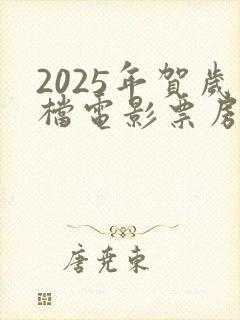 2025年賀歲
檔電影票房
唐堯東